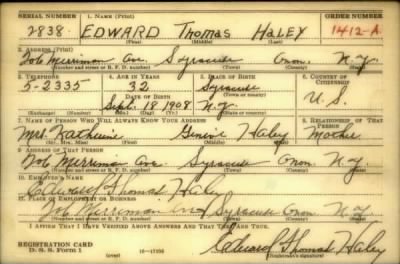 SERIAL NUMBER 1. NAME (Print) ORDER NUMBER
2838 EDWARD Thomas HALEY 1412-A
(First) (Middle) (Last)
2. ADDRESS (Print)
706 Merriman Ave. Syracuse Onon. N.Y.
(Number and street or R. F. D. number) (Town) (County) (State)
3. TELEPHONE 4. AGE IN YEARS 5. PLACE OF BIRTH 6. COUNTRY OF CITIZENSHIP
5-2335 32 Syracuse
DATE OF BIRTH (Town or county)
Sept. 18 1908 N.Y. U.S.
(Exchange) (Number) (Mo.) (Day) (Yr.) (State or country)
7. NAME OF PERSON WHO WILL ALWAYS KNOW YOUR ADDRESS 8. RELATIONSHIP OF THAT PERSON
Mrs. Katherine Haley Mother
(Mr., Mrs., Miss) (First) (Middle) (Last)
9. ADDRESS OF THAT PERSON
706 Merriman Ave. Syracuse Onon. N.Y.
(Number and street or R. F. D. number) (Town) (County) (State)
10. EMPLOYER'S NAME
Edward Thomas Haley
11. PLACE OF EMPLOYMENT OR BUSINESS
706 Merriman Ave Syracuse Onon. N.Y.
(Number and street or R. F. D. number) (Town) (County) (State)
I AFFIRM THAT I HAVE VERIFIED ABOVE ANSWERS AND THAT THEY ARE TRUE.
REGISTRATION CARD
D. S. S. Form 1 (over) Edward Thomas Haley
(Registrant's signature)